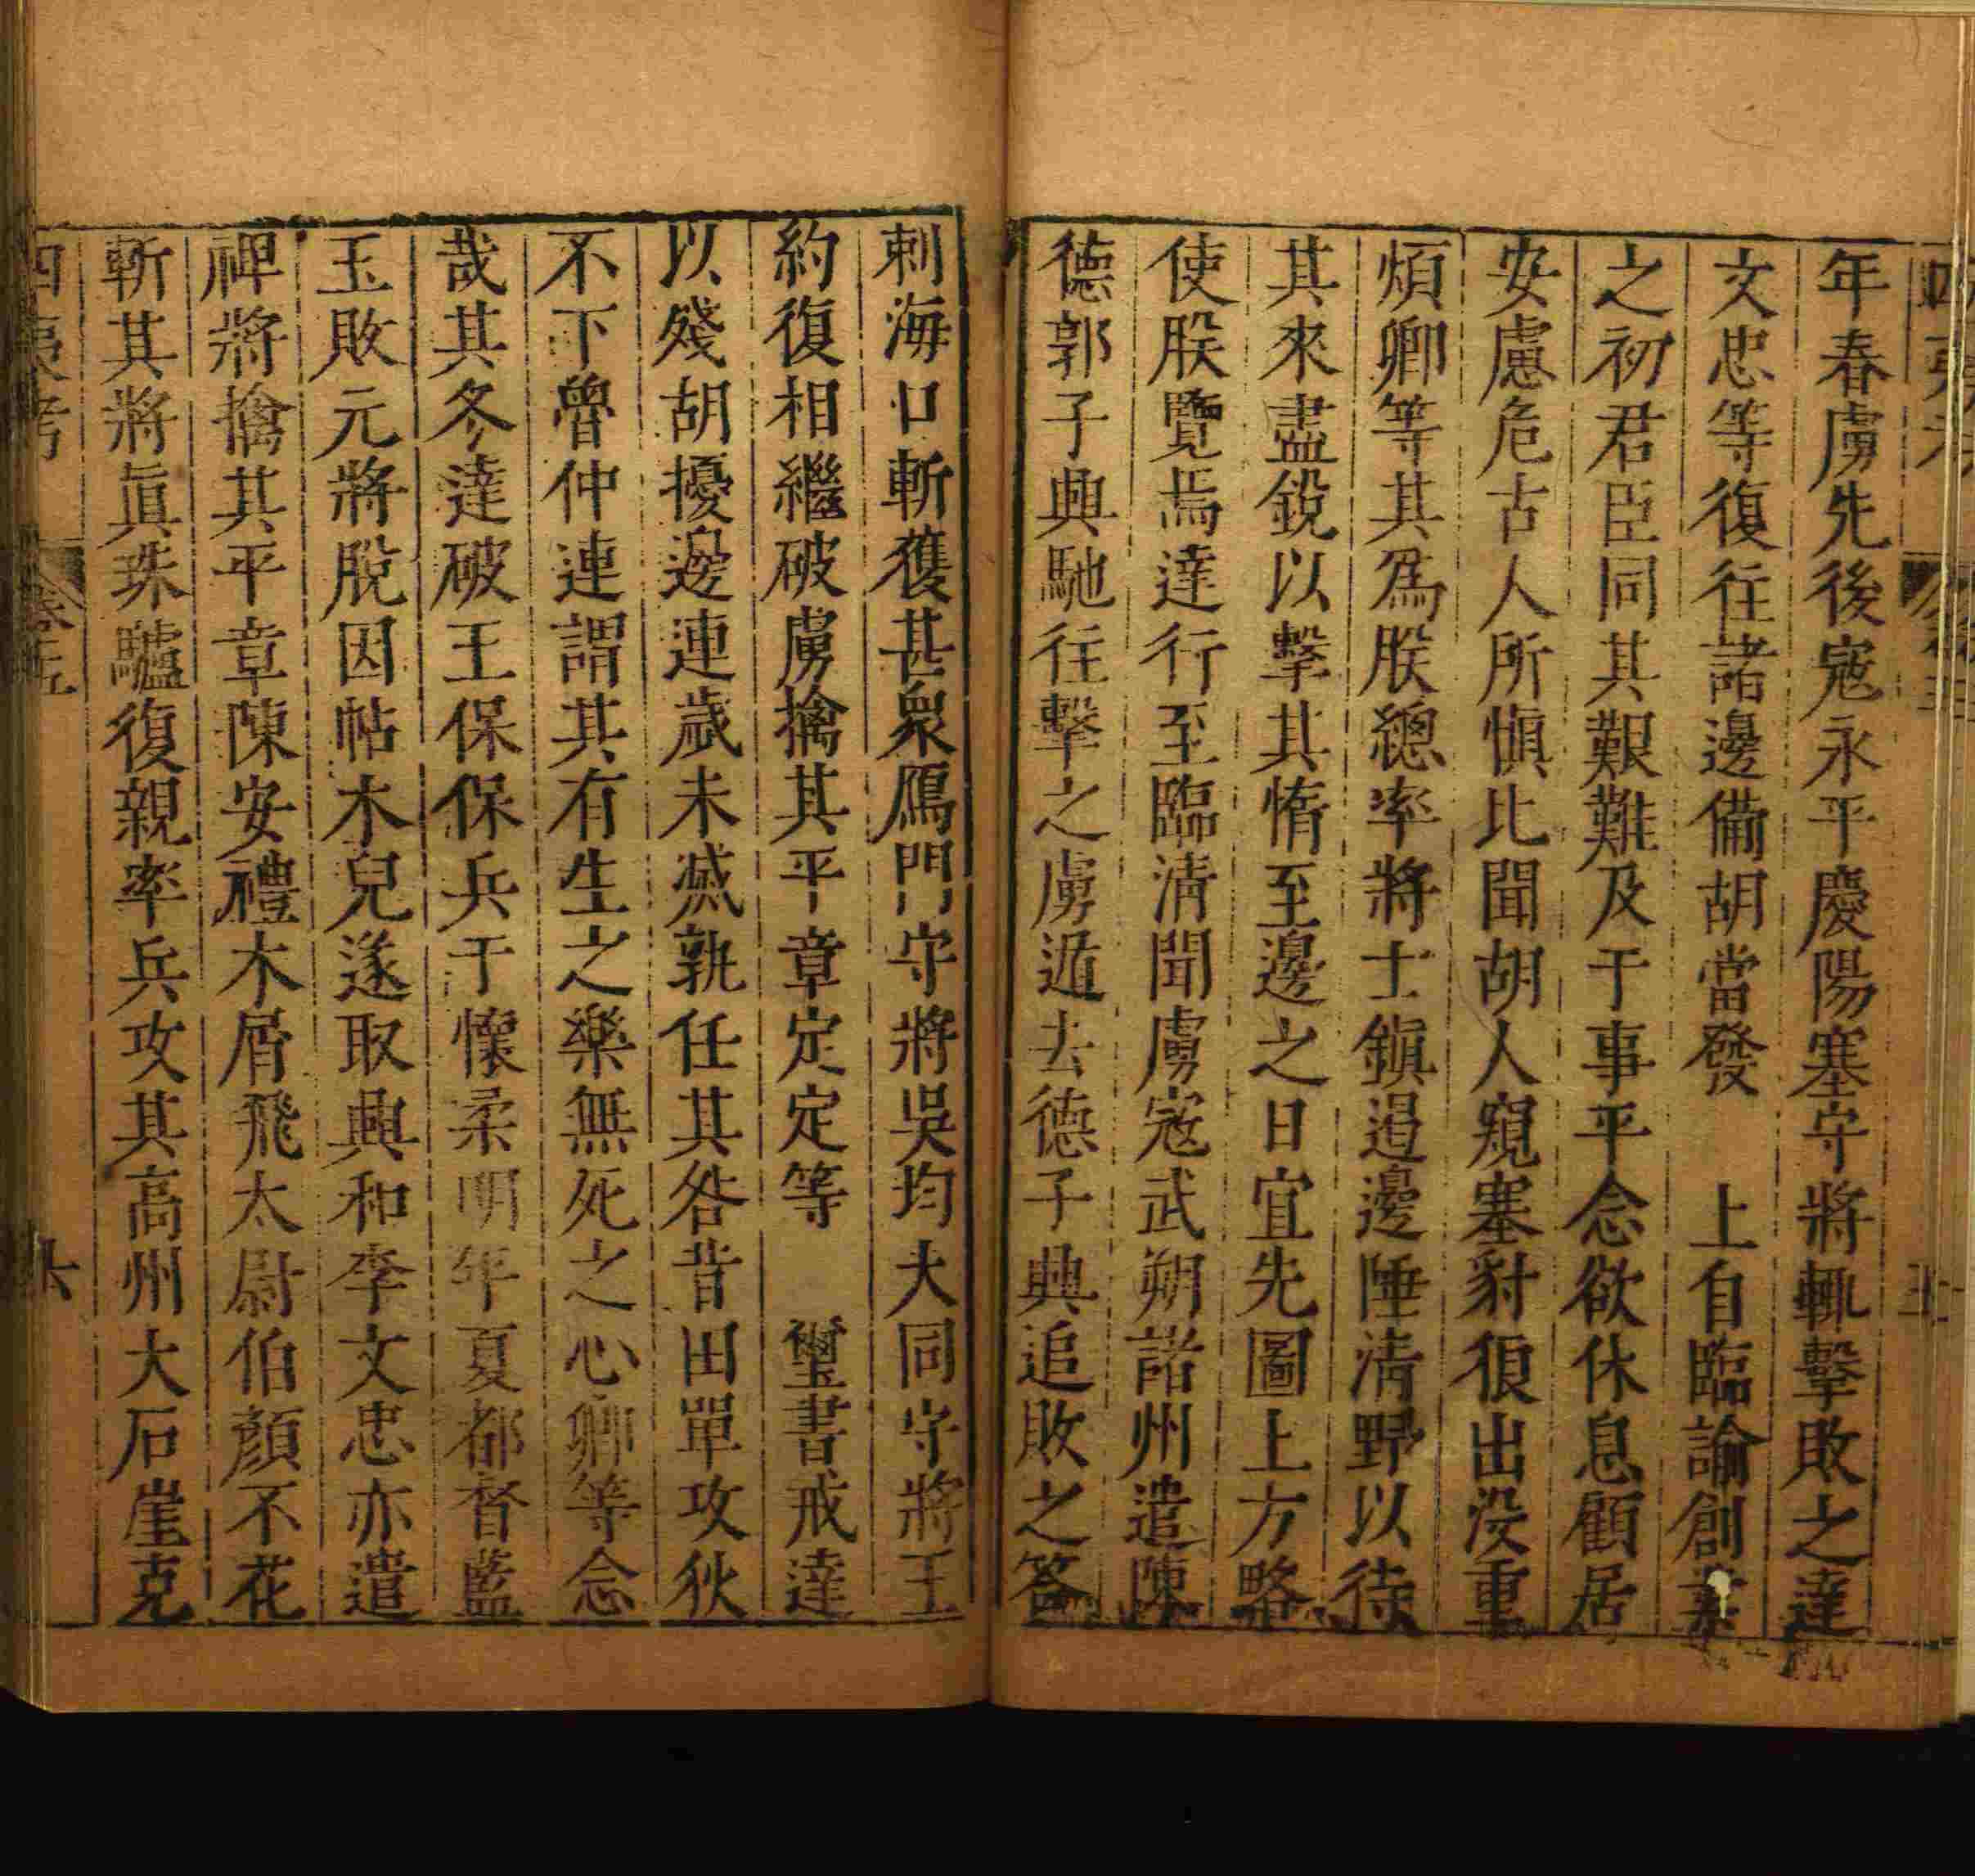 年春虜先後寇永平慶陽塞守將輒擊敗之達
文忠等復往諸邊備胡當發　上自臨諭創業
之初君臣同其艱難及于事平念欲休息顧居
安慮危古人所慎比聞胡人窺塞豺狼出沒重
煩卿等其爲朕總率將士鎭邊邊陲淸野以待
其來盡銳以擊其惰至邊之日宜先圖上方略
使朕覽焉達行至臨淸聞虜寇武朔諸州遣陳
德郭子興馳往擊之虜遁去德子興追敗之答
剌海口斬獲甚衆鴈門守將吳均大同守將王
約復相繼破虜擒其平章定定等　璽書戒達
以殘胡擾邊連歲未滅孰任其咎昔田單攻狄
不下魯仲連謂其有生之樂無死之心卿等念
哉其冬達破王保保兵于懷柔明年夏都督藍
玉敗元將脫因帖木兒遂取興和李文忠亦遣
裨將擒其平章陳安禮木屑飛太尉伯顏不花
斬其將眞珠驢復親率兵攻其高州大石崖克
四夷考　卷之五　共